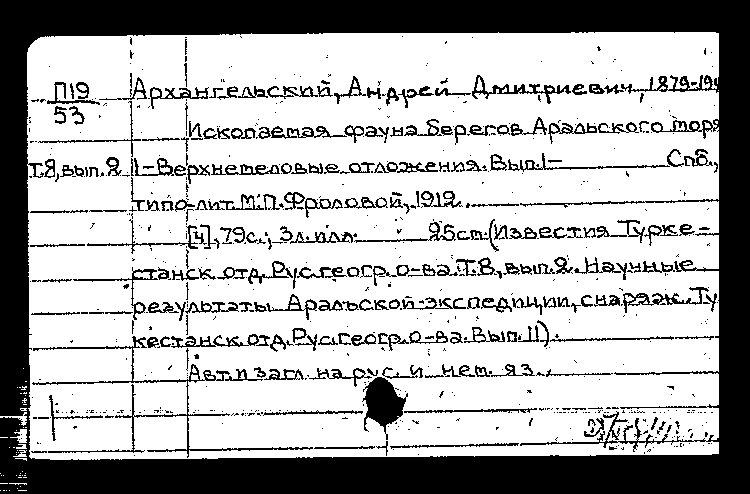 П19
53
Архангельский, Андрей Дмитриевич, 1879-194
Ископаемая фауна берегов Аральского моря
Т.8, вып.2 1-Верхнемеловые отложения. Вып.1- Спб.,
типо-лит. М.П.Фроловой, 1912.
[4], 79с.; 3л.илл. 25см. (Известия Турке-
станск. отд. Рус.геогр. о-ва. Т.8, вып.2. Научные
результаты Аральской экспедиции, снаряж. Ту
кестанск. отд. Рус.геогр. о-ва. Вып. 11).
Авт. и загл. на рус. и нем. яз.